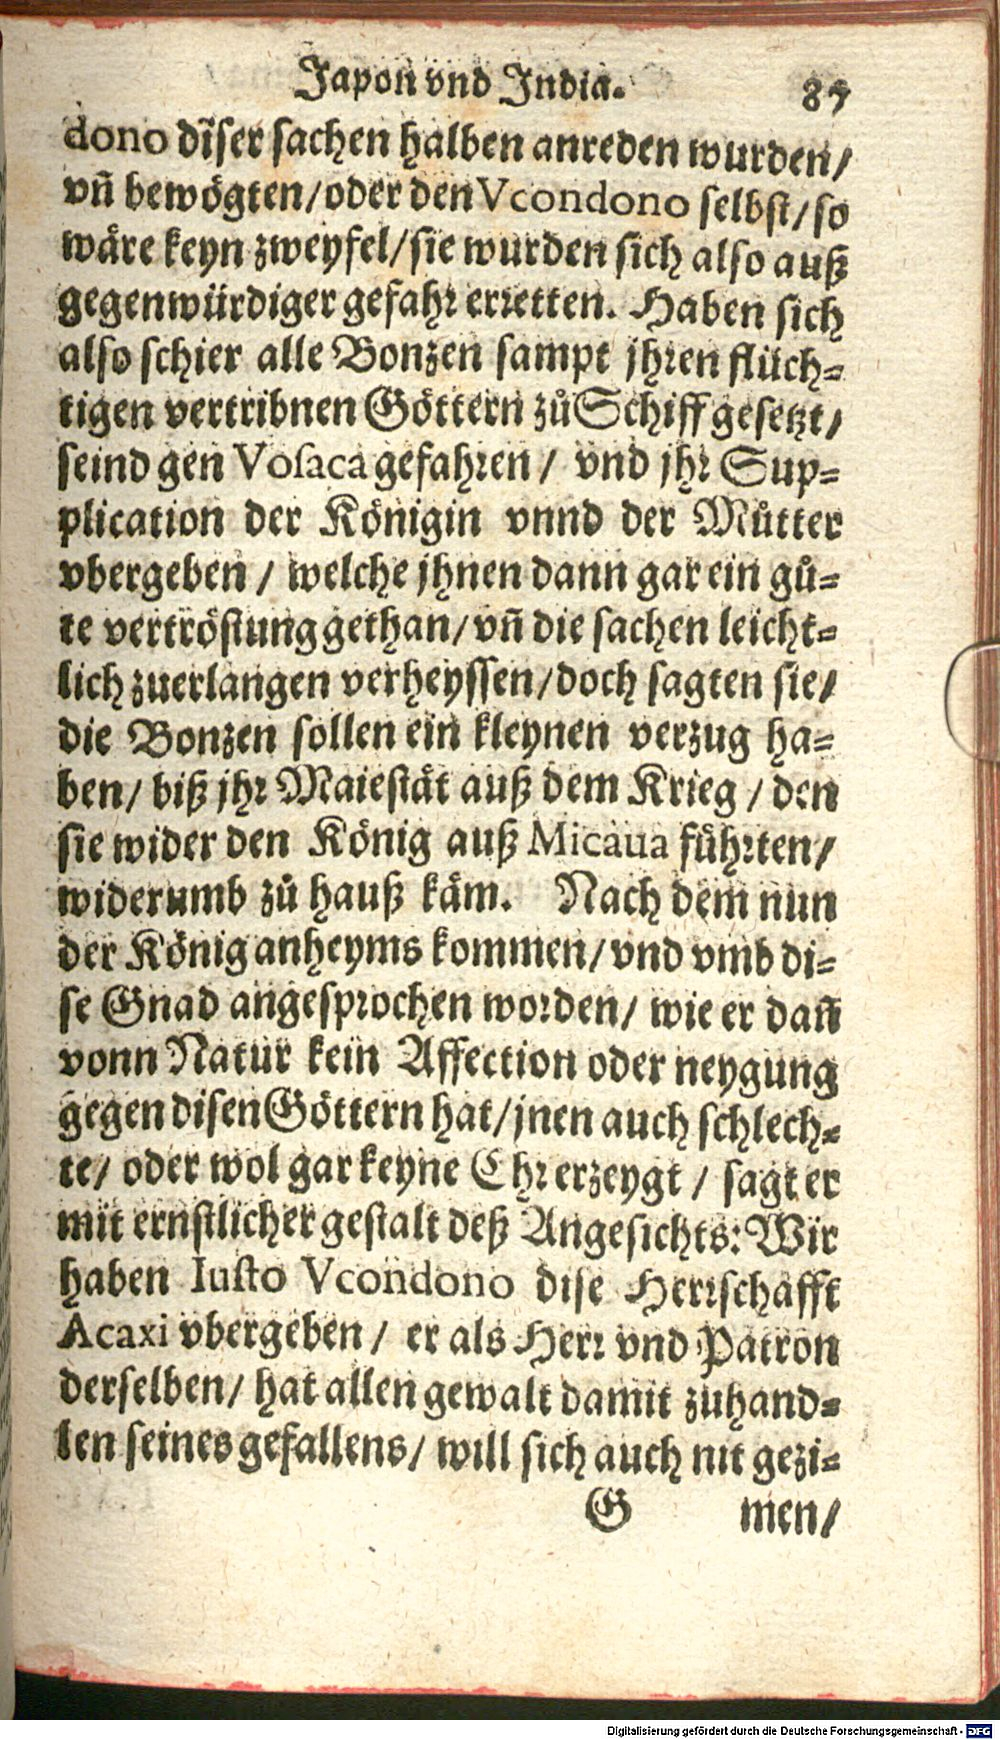 Japon vnd India. 87
dono diser sachen halben anreden wurden/
vñ bewögten/oder den Vcondono selbst/so
wäre keyn zweyfel/sie wurden sich also auß
gegenwürdiger gefahr erretten. Haben sich
also schier alle Bonzen sampt jhren flüch-
tigen vertribnen Göttern zů Schiff gesetzt/
seind gen Vosaca gefahren/ vnd jhr Sup-
plication der Königin vnnd der Můtter
vbergeben/ welche jhnen dann gar ein gů-
te vertröstung gethan/vñ die sachen leicht-
lich zuerlangen verheyssen/doch sagten sie/
die Bonzen sollen ein kleynen verzug ha-
ben/ biß jhr Maiestät auß dem Krieg/ den
sie wider den König auß Micaua führten/
widerumb zů hauß käm. Nach dem nun
der König anheyms kommen/vnd vmb di-
se Gnad angesprochen worden/ wie er dañ
vonn Natur kein Affection oder neygung
gegen disen Göttern hat/jnen auch schlech-
te/ oder wol gar keyne Ehr erzeygt/ sagt er
mit ernstlicher gestalt deß Angesichts: Wir
haben Iusto Vcondono dise Herrschafft
Acaxi vbergeben/ er als Herr vnd Patron
derselben/ hat allen gewalt damit zuhand-
len seines gefallens/ will sich auch nit gezi-
G men/
Digitalisierung gefördert durch die Deutsche Forschungsgemeinschaft - DFG